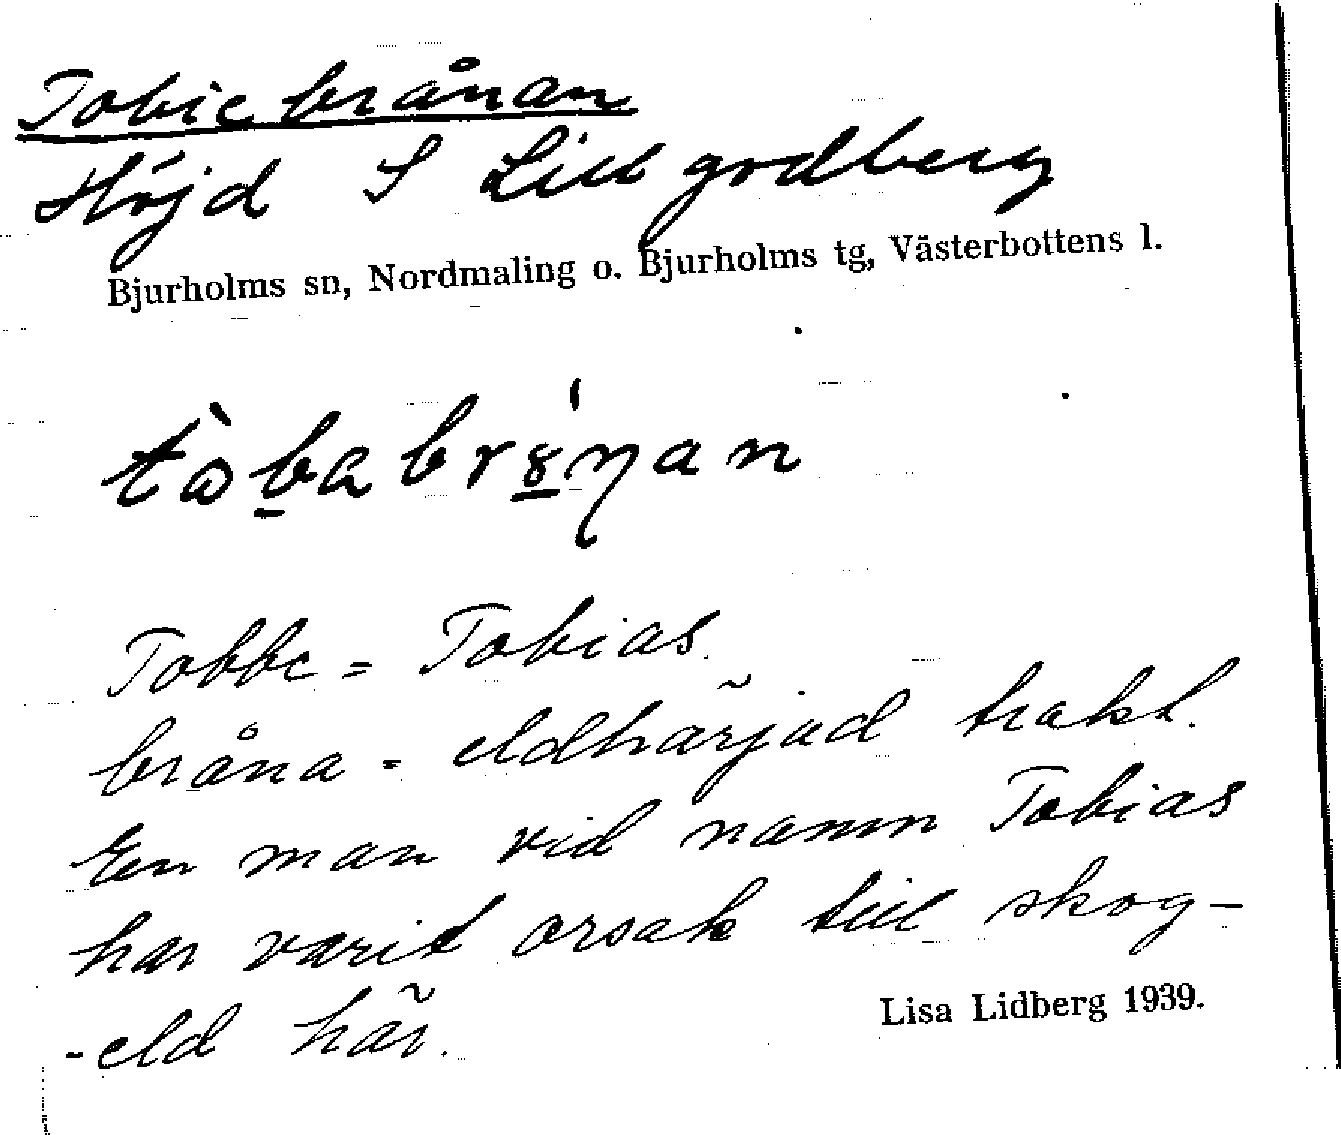 Tobiebrånan
Höjd S Lillgodberg
Bjurholms sn, Nordmaling o. Bjurholms tg, Västerbottens l.
Tobbe = Tobias.
bråna = eldhärjad trakt.
En man vid namn Tobias
har varit orsak till skog-
-eld här.
Lisa Lidberg 1939.